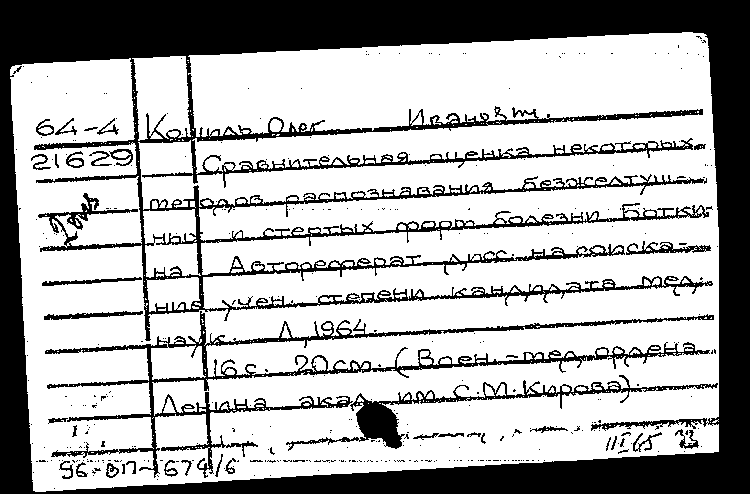 64-4 Кошиль, Олег Иванович.
21629 Сравнительная оценка некоторых
методов распознавания безжелтуш-
ных и стертых форм болезни Ботки-
на. Автореферат дисс. на соиска-
ние учен. степени кандидата мед.
наук. Л., 1964.
16 с. 20 см. (Воен.-мед. ордена
Ленина акад. им. С.М. Кирова).